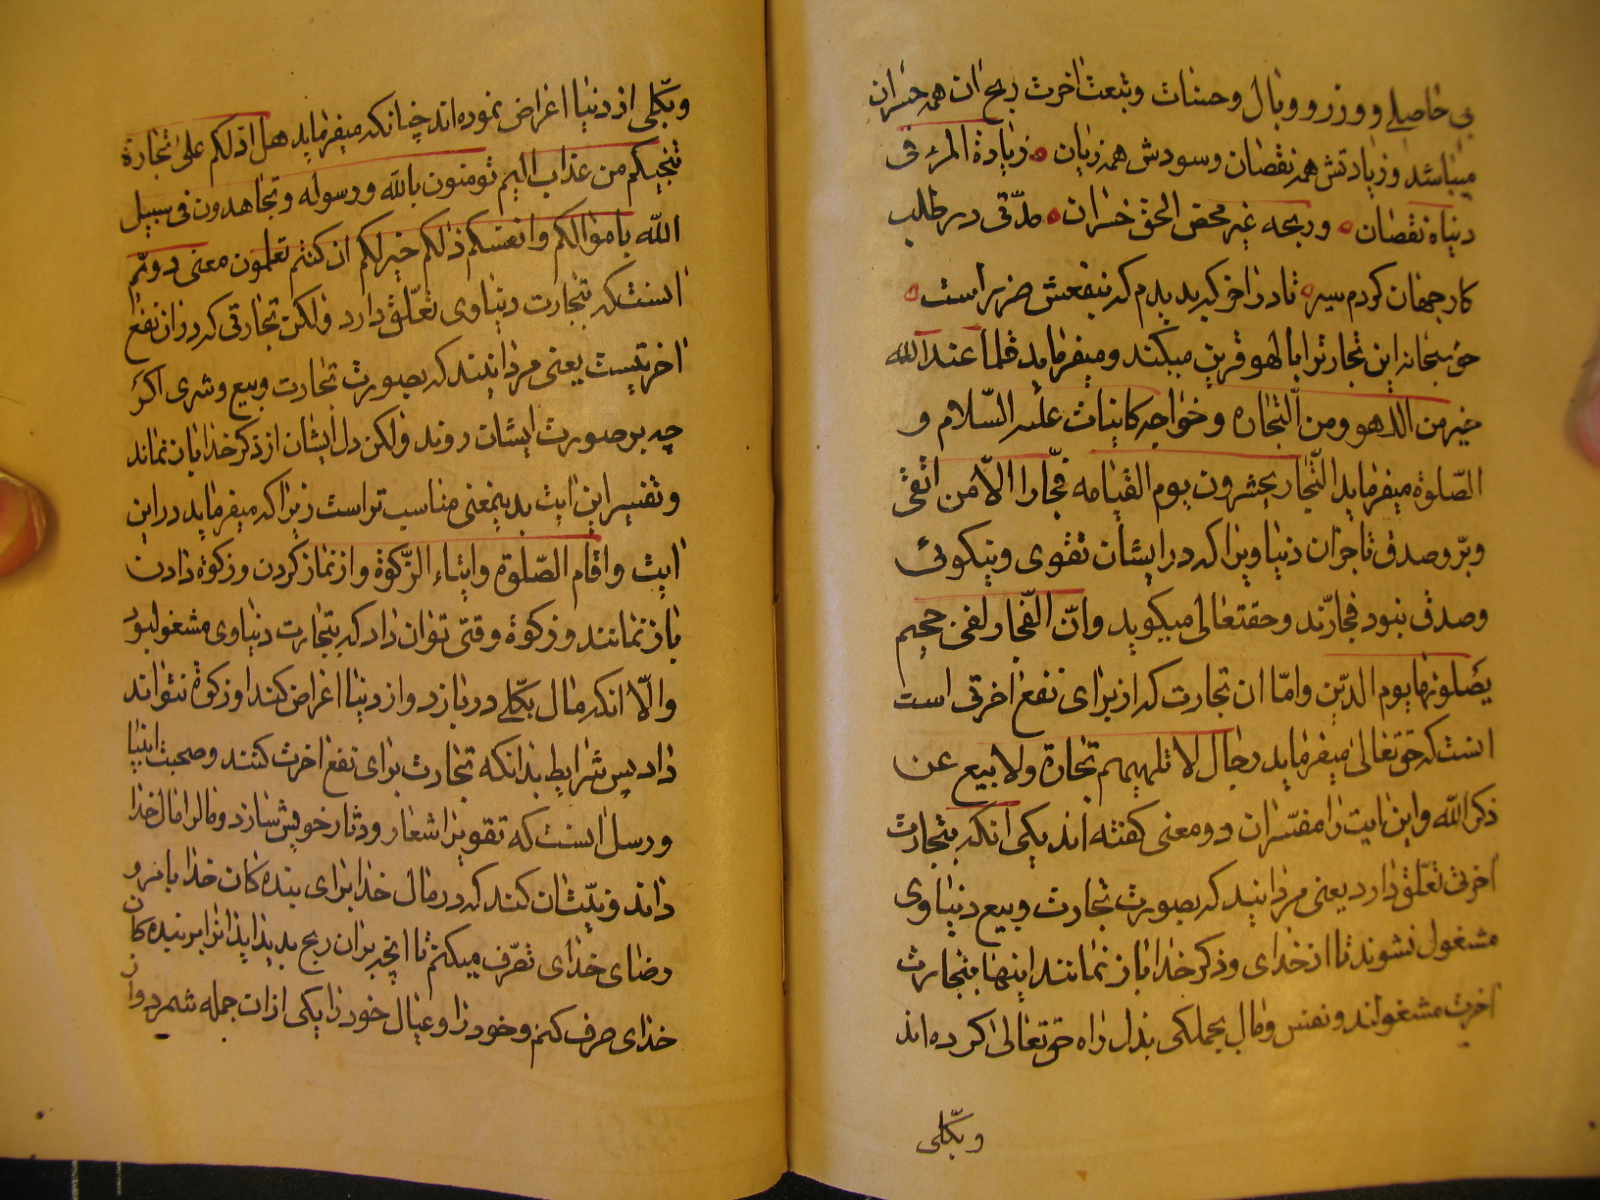 بی حاصلی و وزر و وبال و حسنات و تبعث اخرت ربح ان همه خسران
میباشد و زیادتش همه نقصان و سودش همه زیان زیادة المرء فی
دنیاه نقصان و ربحه غیر محض الحق خسران مدّتی در طلب
کار جهان کردم سیر تا در اخر که بدیدم که نفعش ضرر است
حق سبحانه این تجارترا با لهو قرین میکند و میفرماید قل ما عند الله
خیر من اللهو و من التجاره و خواجه کاینات علیه السّلام و
الصّلوة میفرماید التّجار یحشرون یوم القیامه فجّارا الّا من اتقی
و برّ و صدق تاجران دنیاویرا که در ایشان تقوی و نیکوئی
و صدق نبود فجارند و حقتعالی میکوید و انّ الفجّار لفی جحیم
یصلونها یوم الدّین و امّا ان تجارت که از برای نفع اخرتی است
انست که حق تعالی میفرماید رجال لا تلهیهم تجارة ولا بیع عن
ذکر الله و این ایت را مفسّران دو معنی کفته اند یکی انکه بتجارت
اخرت تعلّق دارد یعنی مردانیند که بصورت تجارت و بیع دنیاوی
مشغول نشوند تا از خدای و ذکر خدا باز نمانند اینها بتجارت
اخرت مشغولند و نفس و مال بجملکی بذل راه حق تعالی کرده اند
و بکّلی
و بکّلی از دنیا اعراض نموده اند چنانکه میفرماید هل ادلکم علی تجارة
تنجیکم من عذاب الیم تومنون بالله و رسوله و تجاهدون فی سبیل
الله باموالکم و انفسکم ذلکم خیر لکم ان کنتم تعلمون معنی دویّم
انست که بتجارت دنیاوی تعلّق دارد و لکن تجارتی که در ان نفع
اخرتیست یعنی مردانیند که بصورت تجارت و بیع و شری اکر
چه بر صورت ایشان روند و لکن دل ایشان از ذکر خدا باز نماند
و تفسیر این ایت بدینمعنی مناسب تر است زیرا که میفرماید در این
ایت و اقام الصّلوة و ایتاء الزّکوة و از نماز کردن و زکوة دادن
باز نمانند و زکوة وقتی توان داد که بتجارت دنیاوی مشغول بود
و الّا انکه مال بکّلی در بازد و از دنیا اعراض کند او زکوة نتواند
داد پس شرایط بدانکه تجارت برای نفع اخرت کنند و صحبت انبیا
و رسل انست که تقویرا شعار و دثار خویش سازد و مال را مال خدا
داند و نیّت ان کنند که در مال خدا برای بنده کان خدا بامر و
رضای خدای تصّرف میکنم تا انچه بر ان ربح بدید اید انرا بر بنده کان
خدای صرف کنم و خود را و عیال خود را یکی از ان جمله شمرد و از